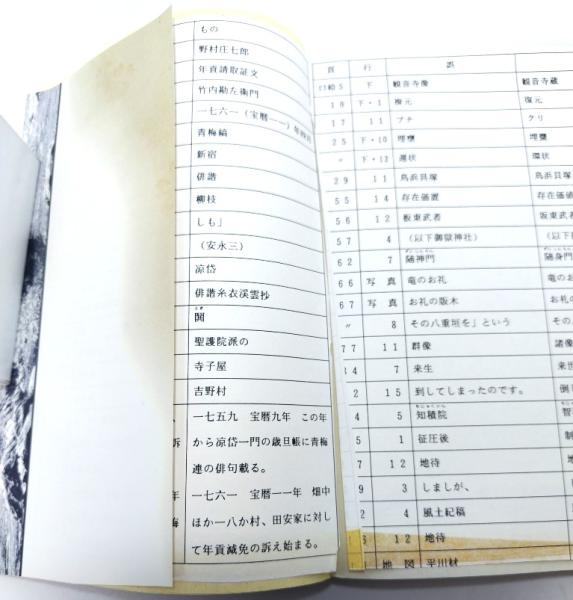 もの
野村庄七郎
年貢請取証文
竹内勘左衛門
一七六一（宝暦一一）年
青梅縞
新宿
俳諧
柳枝
しも」
（安永三）
涼岱
俳諧糸衣渓雲抄
聖護院派の
寺子屋
吉野村
一七五九　宝暦九年　この年
から涼岱一門の歳旦帳に青梅
連の俳句載る。
一七六一　宝暦一一年　畑中
ほか一八か村、田安家に対し
て年貢減免の訴え始まる。
訴
年
頁 行 誤
口絵5 下 観音寺像 観音寺蔵
18 下・1 複元 復元
17 11 ブチ クリ
25 下・10 埋甕 埋甕
〃 下・12 遝状 環状
29 11 鳥浜貝塚 鳥浜貝塚
55 14 存在価置 存在価値
56 12 板東武者 坂東武者
57 4 （以下御嶽神社） （以下
62 7 随神門 随身門
66 写真 竜のお礼 竜のお
67 写真 お礼の版木 お札の
〃 8 その八重垣を」という その八
77 11 群像 諸像
4 7 来生 来世
2 15 到してしまったのです。 倒し
4 5 知積院 智
5 1 征圧後 制
7 12 地待 地
9 3 しましが、 し
2 4 風土紀稿
12 地待
地図 平川材